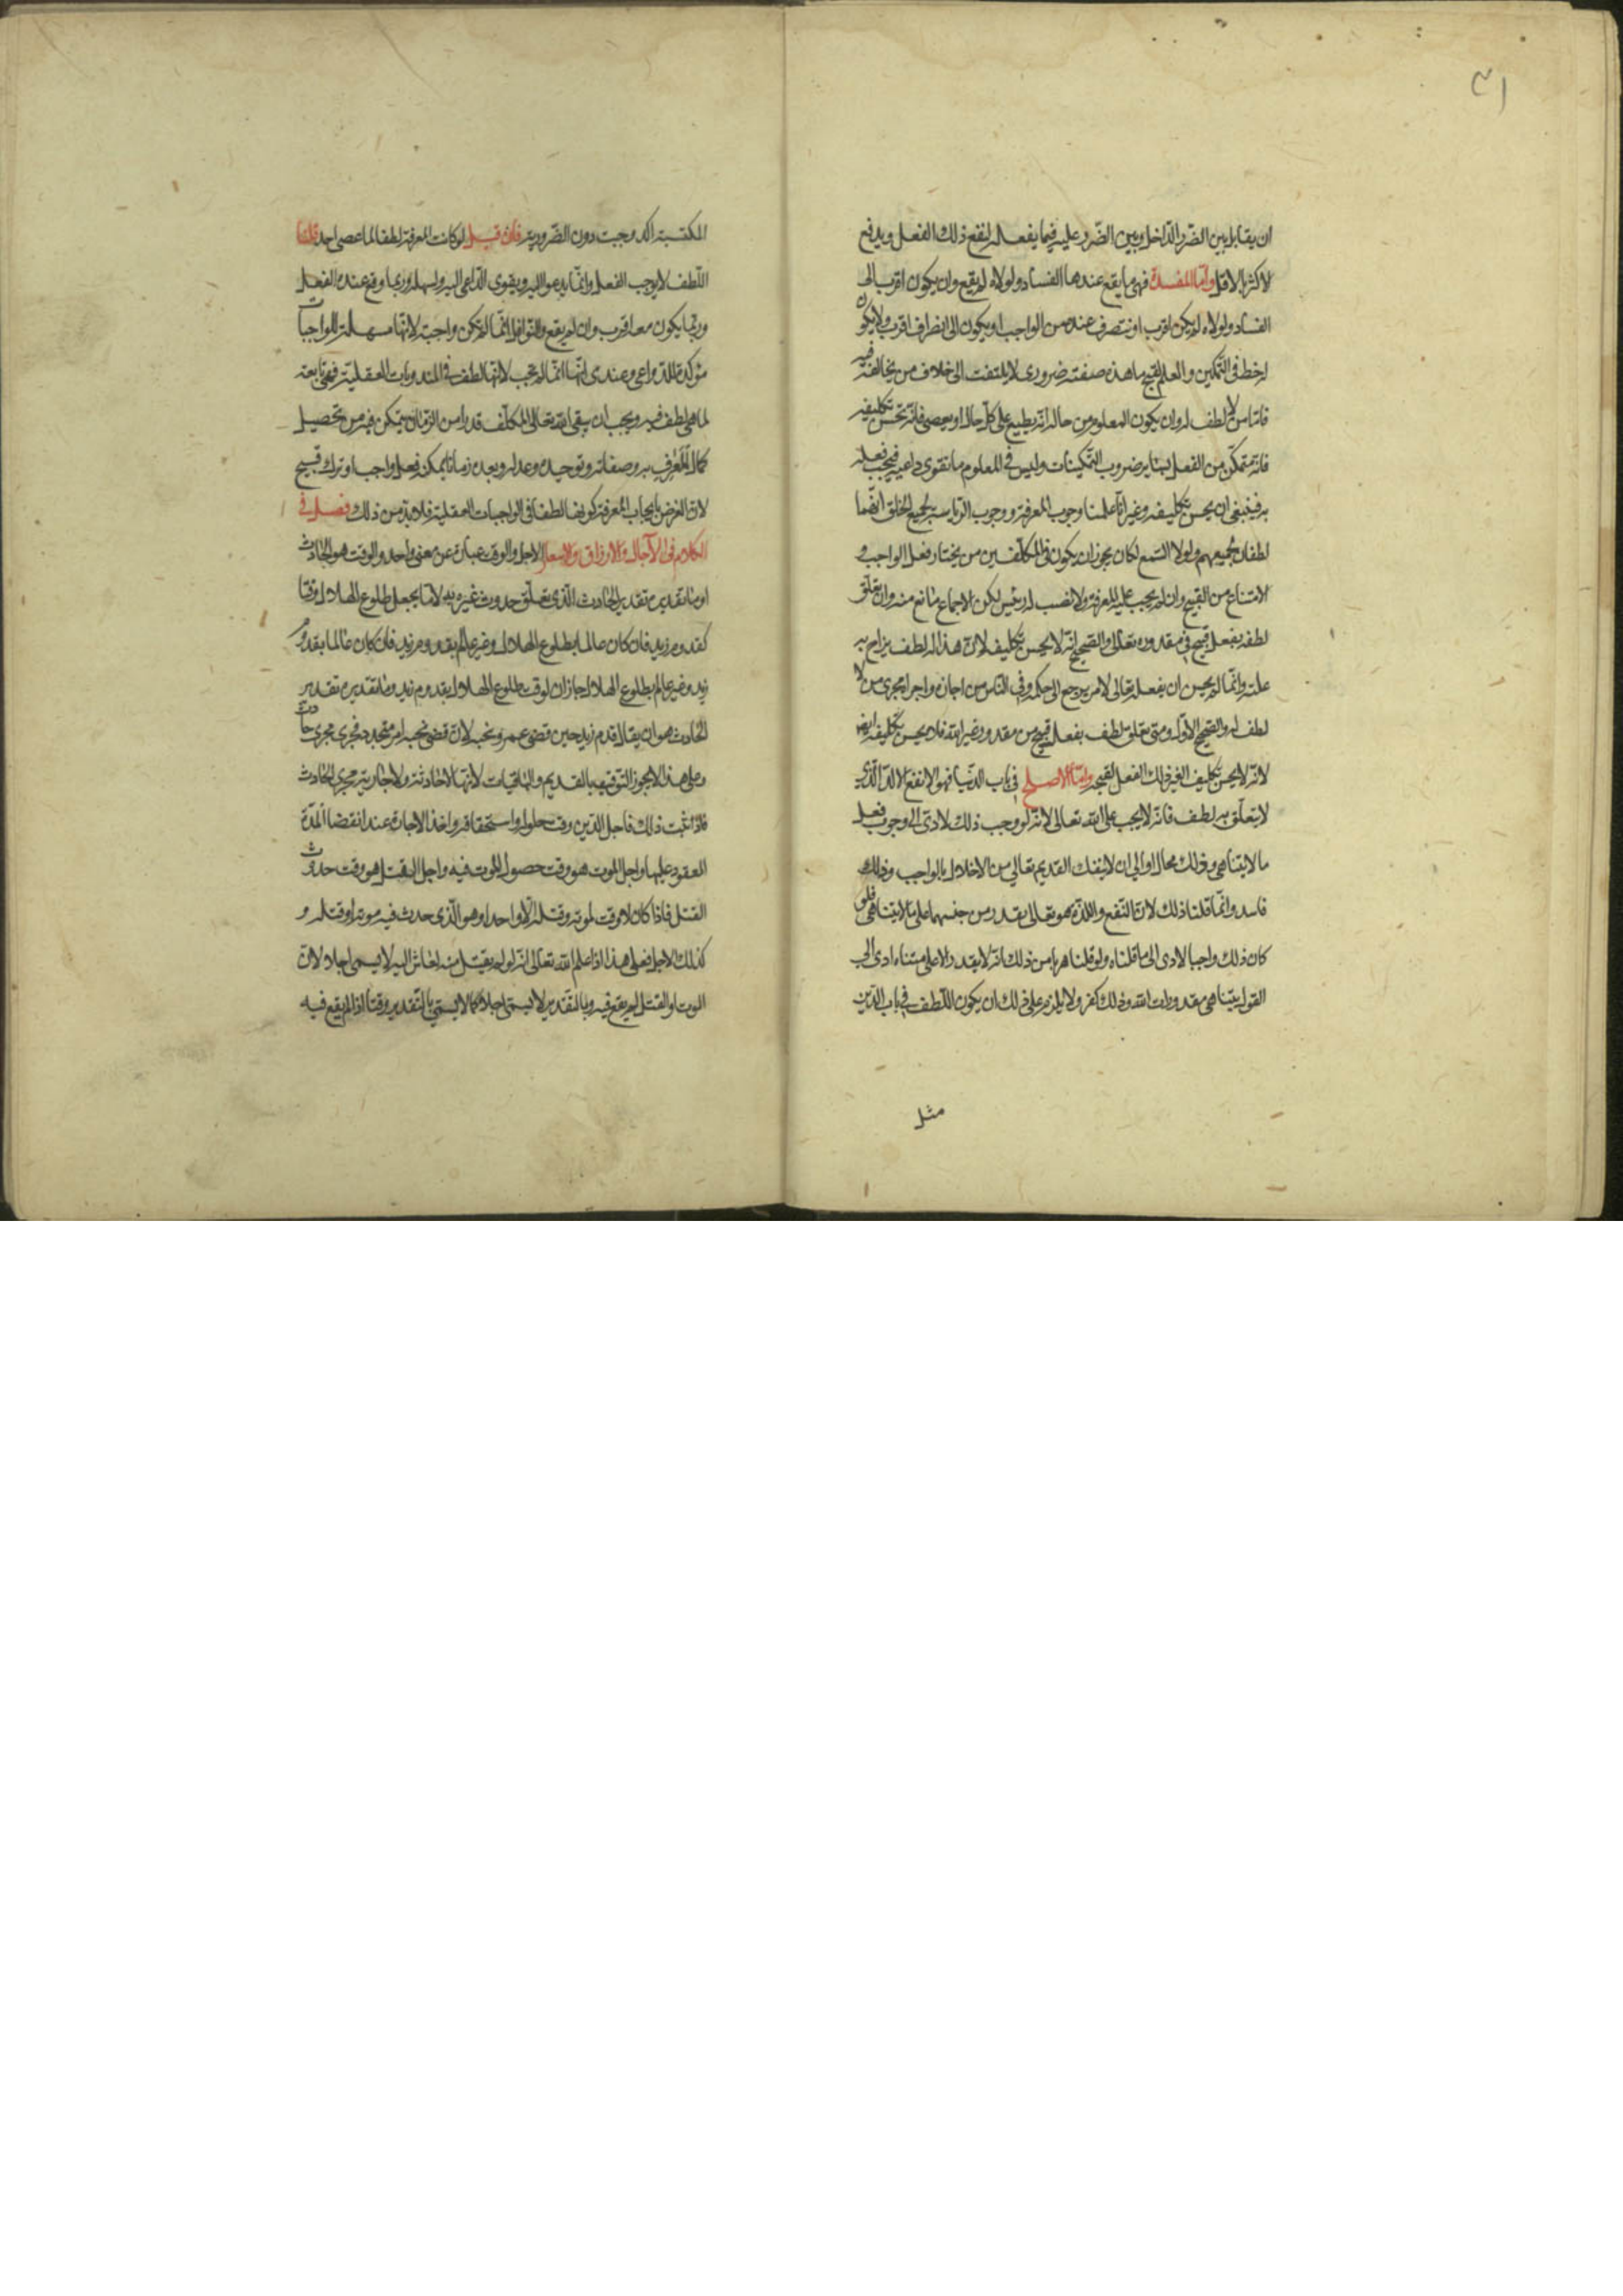 ٣١
ان يقابل بين الضّرر الدّاخل وبين الضّرر عليه فيما يفعله لنفع ذلك الفعل ويدفع
الاكثر بالاقل وامّا المفسدة فهي ما يقع عندها الفساد ولولاه لم يقع وان يكون اقرب الى
الفساد ولولاه لم يكن اقرب او تنصرف عنده من الواجب او يكون الى انصراف اقرب ولا يكون
له خط في التّمكين والعلم بقبح ما هذه صفته ضروري لا يلتفت الى خلاف من يخالف فيه
فامّا من لا لطف له وان يكون المعلوم من حاله انّه يطيع على كلّ حال او يعصي فانّه تحسن تكليفه
فانّه متمكّن من الفعل بسائر ضروب التّمكينات وليس في المعلوم ما تقوى داعيه فيجب فعله
به فينبغي ان يحسن تكليفه وغير انّا علمنا وجوب المعرفة ووجوب الرّياسة لجميع الخلق انّهما
لطفان لجميعهم ولولا السّمع لكان يجوز ان يكون في المكلّفين من يختار فعل الواجب و
الامتناع من القبيح وان لم يجب عليه المعرفة ولا نصب له رئيس لكن الاجماع مانع منه وان تعلّق
لطفه بفعل قبيح في مقدوره تعالى والصّحيح انّه لا يحسن تكليفه لانّ هذا له لطف يزاح به
علته وانّما لم يحسن ان يفعله تعالى لامر يرجع الى حكمه وفي النّاس من اجازه واجراه مجرى من لا
لطف له والصّحيح الاوّل ومتى تعلق لطف بفعل قبيح من مقدور غير الله فلا يحسن تكليفه ايضا
لانّه لا يحسن تكليف الغير ذلك الفعل لقبحه وامّا الاصلح في باب الدّنيا فهو الانفع الالذّ الّذي
لا يتعلّق به لطف فانّه لا يجب على الله تعالى لانّه لو وجب ذلك لادّى الى وجوب فعل
ما لا يتناهى وذلك محال او الى ان لا ينفك القديم تعالى من الاخلال بالواجب وذلك
فاسد وانّما قلنا ذلك لانّ النّفع واللذّة هو تعالى يقدر من جنسهما على ما لا يتناهى فلو
كان ذلك واجبا لادى الى ما قلناه ولو قلنا هربا من ذلك انّه لا يقدر الا على متناه ادى الى
القول بتناهي مقدورات الله وذلك كفر ولا يلزم على ذلك ان يكون اللّطف في باب الدّين
مثل
المكتسبة آكد وجبت دون الضّرورية فان قيل لو كانت المعرفة لطفا لما عصى احد قلنا
اللّطف لا يوجب الفعل وانّما يدعو اليه ويقوى الدّاعي اليه ويسهله وربما وقع عنده الفعل
وربّما يكون معه اقرب وان لم يقع والنّوافل انّما لم تكن واجبة لانّها مسهلة للواجبات
مؤكدة للدّواعي وعندي انّها انّما لم يجب لانّها لطف في المندوبات العقليّة فهي تابعة
لما هي لطف فيه ويجب ان يبقى الله تعالى المكلّف قدرا من الزّمان يتمكّن فيه من تحصيل
كمال المعرف به وصفاته وتوحيده وعدله وبعده زمانا يمكنه فعل واجب او ترك قبيح
لانّ الغرض بايجاب المعرفة كونها لطفا في الواجبات العقلية فلا بدّ من ذلك فصل في
الكلام في الآجال والارزاق والاسعار الاجل والوقت عبارة عن معنى واحد والوقت هو الحادث
او ما تقديره تقدير الحادث الّذي تعلّق حدوث غيره به لانّا يجعل طلوع الهلال وقتا
لقدوم زيد فان كان عالما بطلوع الهلال وغير عالم بقدوم زيد فان كان عالما بقدوم
زيد وغير عالم بطلوع الهلال جاز ان يوقت طلوع الهلال بقدوم زيد وما تقديره تقدير
الحادث هو ان يقال قدم زيد حين قضى عمرو نحبه لانّ قضى نحبه امر متجدد فجرى مجرى حادث
وعلى هذا لا يجوز التّوقيت بالقديم والباقيات لانّها لا حادثة ولا جارية مجرى الحادث
فاذا ثبت ذلك فاجل الدّين وقت حلوله واستحقاقه واخذ الاجارة عند انقضا المدّة
العقود عليها واجل الموت هو وقت حصول الموت فيه واجل القتل هو وقت حدوث
القتل فاذا كان لا وقت لموته وقتله الّا واحدا وهو الّذي حدث فيه موته او قتله و
كذلك الاجل فعلى هذا اذا علم الله تعالى انّه لو لم يقتل فيه لعاش اليه لا يسمى اجلا لانّ
الموت او القتل لم يقع فيه وبالتّقدير لا يسمّى اجلا كما لا يسمّى بالتّقدير وقتا اذا لم يقع فيه